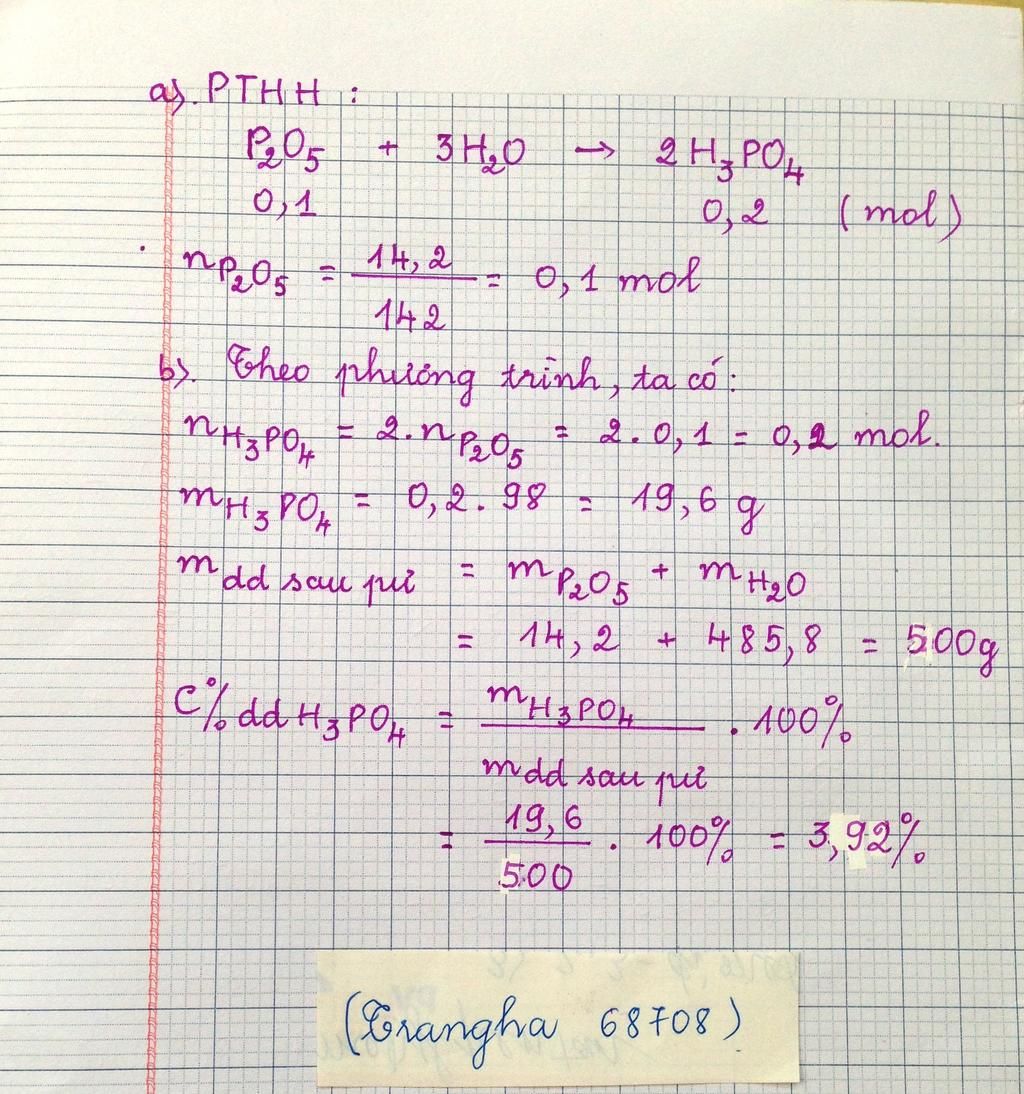 a). PTHH :
P₂O₅ + 3H₂O → 2H₃PO₄
0,1 0,2 (mol)
nP₂O₅ = 14,2 / 142 = 0,1 mol
b). Theo phương trình, ta có:
nH₃PO₄ = 2.nP₂O₅ = 2.0,1 = 0,2 mol.
mH₃PO₄ = 0,2.98 = 19,6 g
mdd sau pư = mP₂O₅ + mH₂O
= 14,2 + 485,8 = 500g
C% dd H₃PO₄ = mH₃PO₄ / mdd sau pư . 100%
= 19,6 / 500 . 100% = 3,92%
(Trangha 68708)